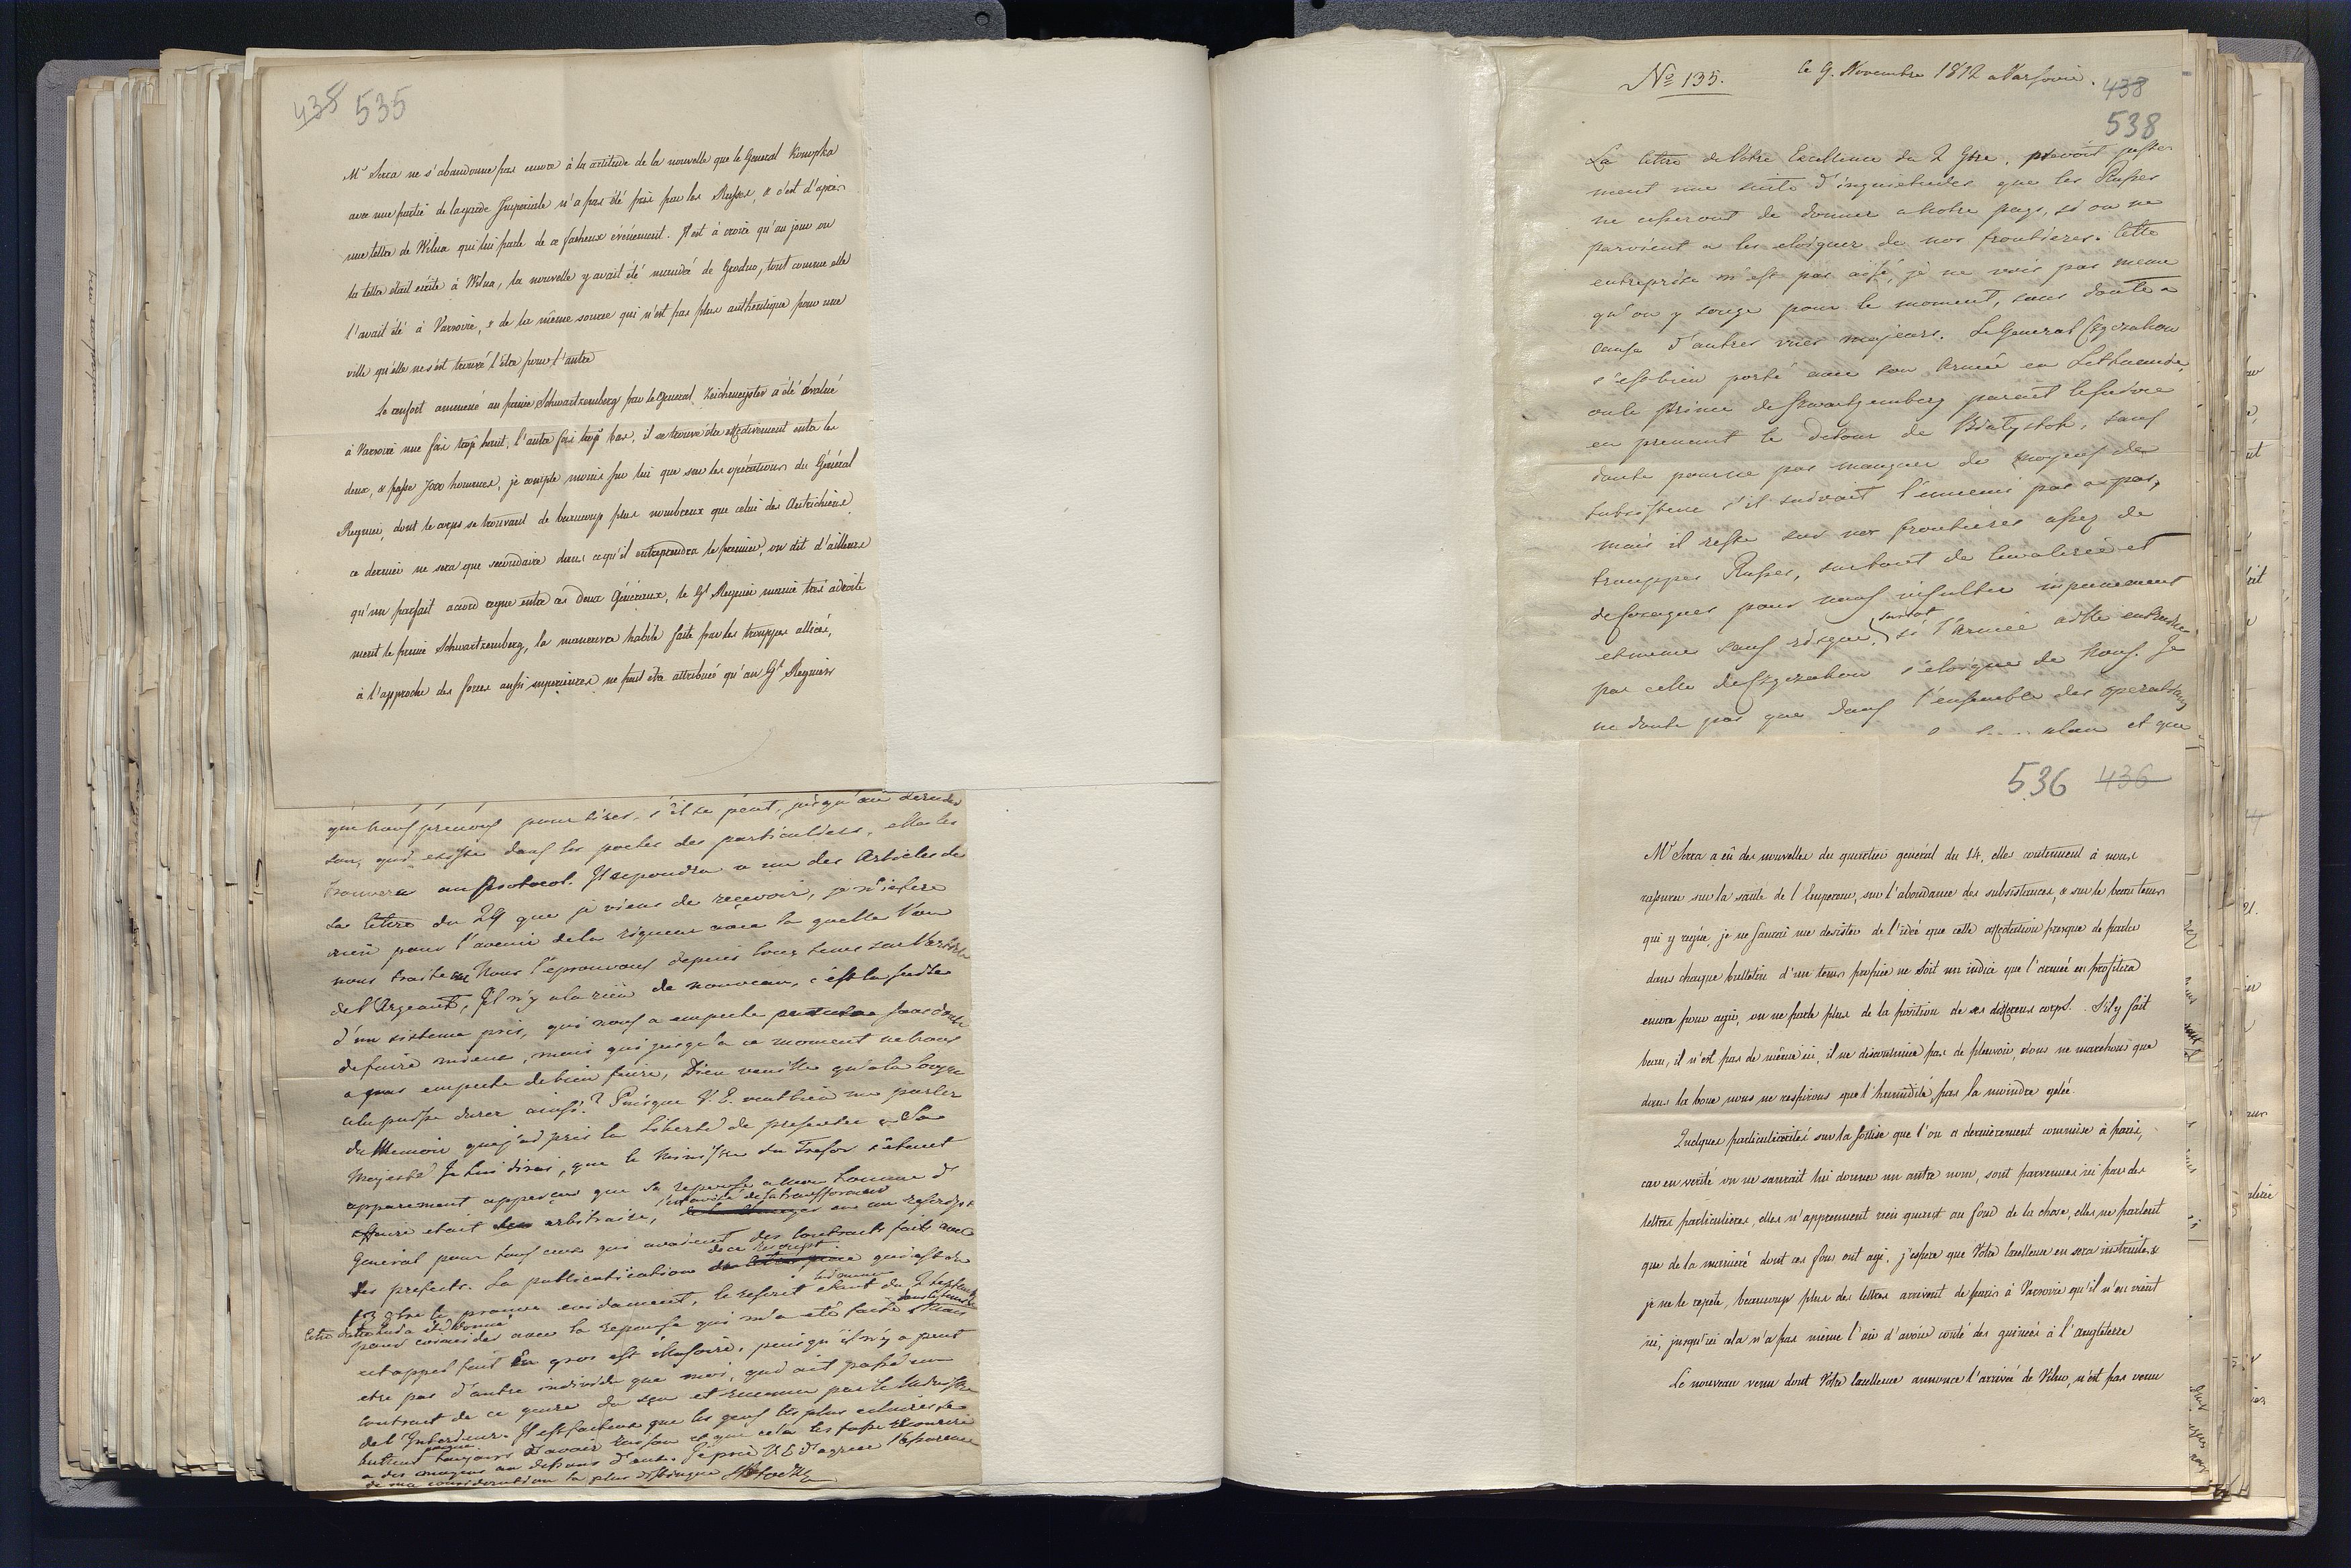 435 535
Mr Serra ne s'abandonne pas encore à la certitude de la nouvelle que le General Konopka
avec une partie de la garde Imperiale n'a pas été pris par les Russes, & c'est d'après
une lettre de Wilna qui lui parle de ce facheux évènement. Il est à croire qu'au jour ou
la lettre était écrite à Wilna, la nouvelle y avait été mandé de Grodno, tout comme elle
l'avait été à Varsovie, & de la même source qui n'est pas plus authentique pour une
ville qu'elle ne s'est trouvé l'être pour l'autre
Le renfort ammené au prince Schwartzemberg par le General Reichmeyster a été évalué
à Varsovie une fois trop haut, l'autre fois trop bas, il se trouve être effectivement entre les
deux, & passe 7000 hommes, je compte moins sur lui que sur les opérations du Général
Regnier, dont le corps se trouvant de beaucoup plus nombreux que celui des Autrichiens
ce dernier ne sera que secondaire dans ce qu'il entreprendra le premier, on dit d'ailleurs
qu'un parfait accord regne entre ces deux Généraux, le Gl Regnier manie très adroite
ment le prince Schwartzemberg, la manoeuvre habile faite par les trouppes alliées,
à l'approche des forces aussi superieures ne peut être attribuée qu'au Gl Regnier
que nous prenons pour tirer, s'il se peut, jusqu'au dernier
sou, qui existe dans les poches des particuliers, elle les
trouvera au Protocol. Il repondra a un des Articles de
la lettre du 29 que je viens de reçevoir, je n'infere
rien pour l'avenir de la rigueur avec la quelle l'on
nous traite Nous l'eprouvons depuis longtems sur l'article
de l'Argeant, Il n'y a la rien de nouveau, c'est la suitte
d'un sisteme pris, qui nous a empeche sans doute
de faire mieux, mais qui jusqu'a ce moment ne nous
a pas empeche de bien faire, Dieu veuille qu'a la longue
cela puisse durer ainsi? Puisque V. E. veut bien me parler
du Memoire que j'ai pris la Liberté de presenter a Sa
Majesté Je lui dirai, que le Ministre du Tresor s'etant
apparement apperçu que sa reponse a mon homme d'
affaire etait arbitraire, l'a transformé en un rescript
General pour tous ceux qui avaient des contracts faits avec
les prefects. La publication de ce Rescript qui est du
13 8bre le prouve evidament, le rescrit etant du 2 Septembre
pour coincider avec la reponse qui m'a eté faite Mais
cet appel fait en gros est illusoire, puisqu'il n'y a peut
etre pas d'autre individu que moi, qui ait passé un
contract de ce genre du sçu et reconnu par le Ministre
de l'Interieur. Il est facheux que les gens les plus eclairés se
butient toujours d'avoir raison et que cela les fasse recourir
a des moyens au dessous d'eux. Je prie V. E. d'agreer l'assurance
de ma consideration la plus distingué
No 135. le 9. Novembre 1812 a Varsovie.
438
538
La lettre de Votre Excellence du 2 9bre, prevoit juste
ment une suite d'inquietudes que les Russes
ne cesseront de donner a Notre pays, si on ne
parvient a les eloigner de nos frontieres. Cette
entreprise n'est pas aisé, je ne vois pas meme
qu'on y songe pour le moment, sans doute a
cause d'autres vues majeures. Le General Czyczakow
s'est bien porté avec son Armée en Lithuanie,
ou le Prince de Szwartzemberg parait le suivre
en prenant le detour de Bialystok, sans
doute pour ne pas manquer de moyens de
subsistence s'il suivait l'ennemi pas a pas,
mais il reste sur nos frontieres assez de
trouppes Russes, surtout de Cavalerie et
de Cosaques pour nous insulter impunement
et meme sans risque, surtout si l'armée
par celle de Czyczakow s'eloigne de Nous. Je
ne doute pas que dans l'ensemble des operations
plan et que
536 436
Mr Serra a eû des nouvelles du quartier general du 14, elles contiennent à nous
rassurer sur la santé de l'Empereur, sur l'abondance des subsistances, & sur le beau tems
qui y regne, je ne saurai me desister de l'idée que cette affectation presque de parler
dans chaque bulletin d'un tems propice ne soit un indice que l'armée en profitera
encore pour agir, on ne parle plus de la position de ses differens corps. S'il y fait
beau, il n'est pas de même ici, il ne discontinue pas de pleuvoir, nous ne marchons que
dans la boue nous ne respirons que l'humidité, pas la moindre gelée.
Quelques particularités sur la sottise que l'on a dernierement commise à paris,
car en verité on ne saurait lui donner un autre nom, sont parvenues ici par des
lettres particulieres, elles n'apprennent rien quant au fond de la chose, elles ne parlent
que de la manieré dont ces fous ont agi. j'espere que Votre Excellence en sera instruite, &
je ne le repete, beaucoup plus des lettres arrivent de paris à Varsovie qu'il n'en vient
ici, jusqu'ici cela n'a pas même l'air d'avoir couté des guinées à l'angleterre
Le nouveau venu dont Votre Excellence annonce l'arrivée de Vilna, n'est pas venu